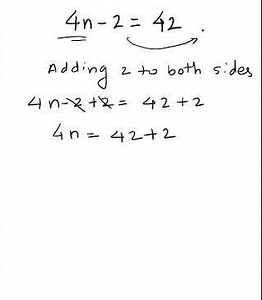 4n - 2 = 42 .
Adding 2 to both sides
4n - 2 + 2 = 42 + 2
4n = 42 + 2